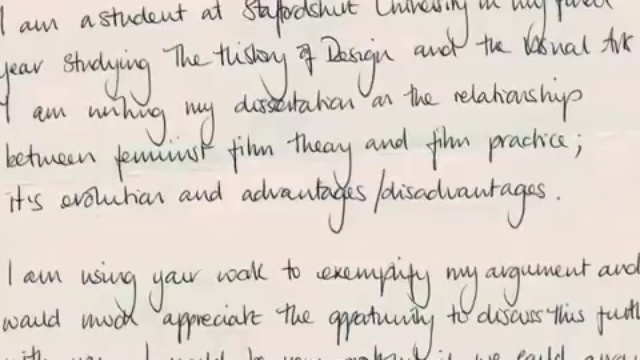 I am a student at Staffordshire University in my final
year studying The History of Design and the Visual Arts
I am writing my dissertation on the relationship
between feminist film theory and film practice;
it's evolution and advantages/disadvantages.
I am using your work to exemplify my argument and
would much appreciate the opportunity to discuss this furth
with you. I would be very if we could